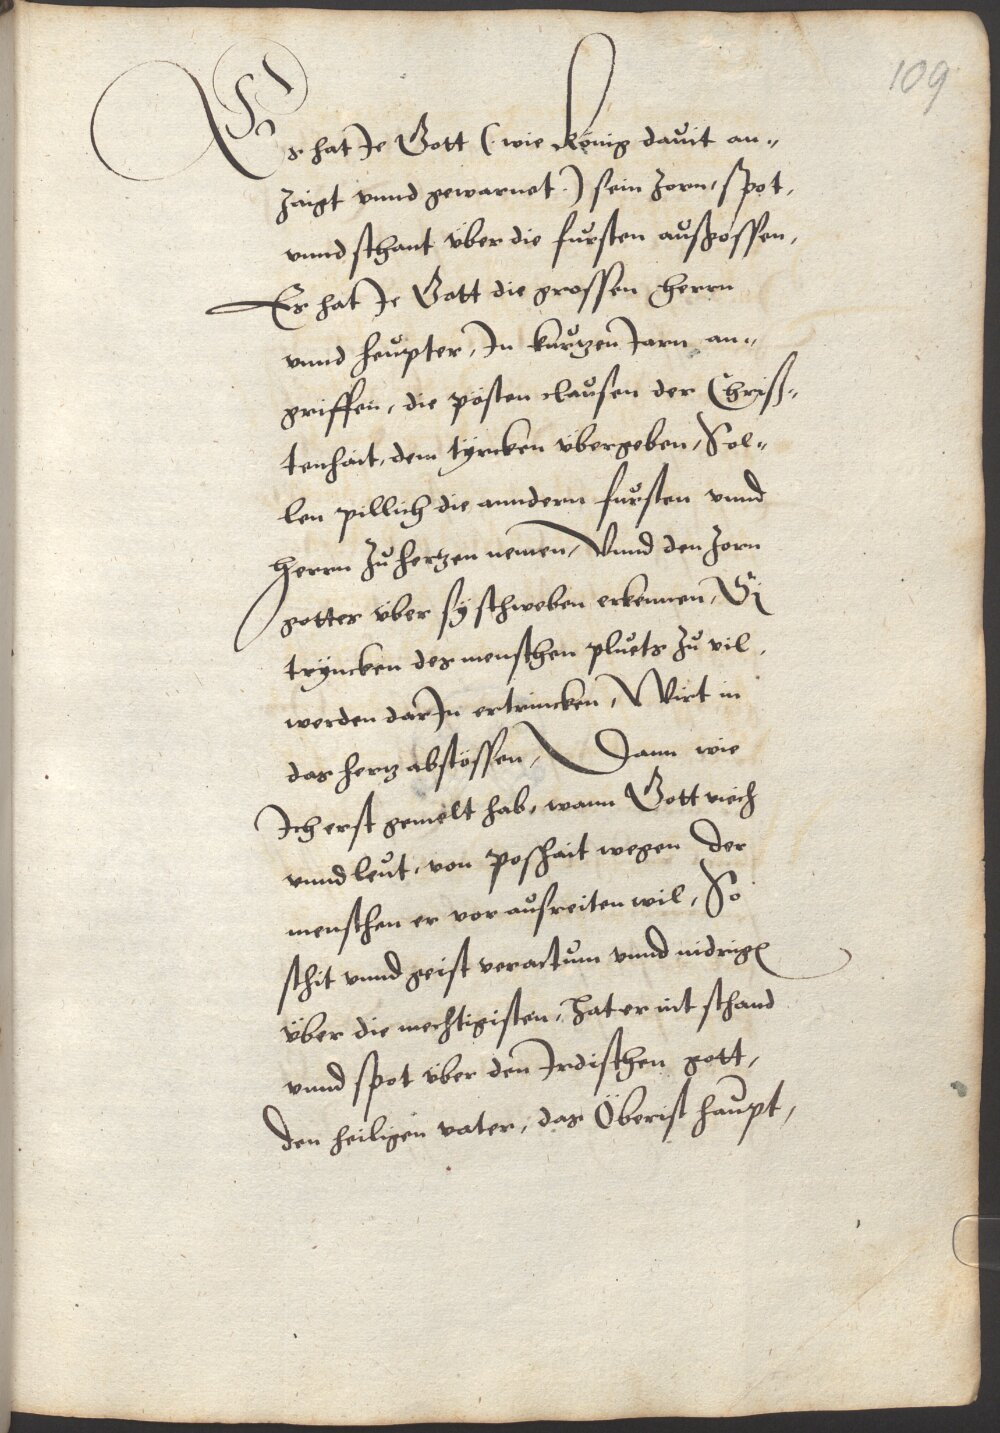 109
Es hat Je Gott (wie König dauit an-
zaigt vnnd gewarnet.) sein zorn, spot,
vnnd schant über die fursten außgossen,
Es hat Je Gott die grossen herrn
vnnd heupter, In kurtzen Jarn an-
griffen, die pösten clausen der Chriß-
tenhait, dem tyrcken übergeben, Sol-
len pillich die anndern fursten vnnd
herrn zu hertzen nemen, Vnnd den zorn
gottes über sy schweben erkennen, Si
tryncken des menschen pluets zu vil,
werden darIn ertrincken, Wirt in
das hertz abstössen, Dann wie
Ich erst gemelt hab, wann Gott viech
vnnd leut, von poshait wegen der
menschen er vor ausreiten wil, So
schit vnnd geist veractum vnnd nidrigs
über die mechtigisten, Hat er nit schand
vnnd spot über den Irdischen gott,
den heiligen vater, das Öberist haupt,